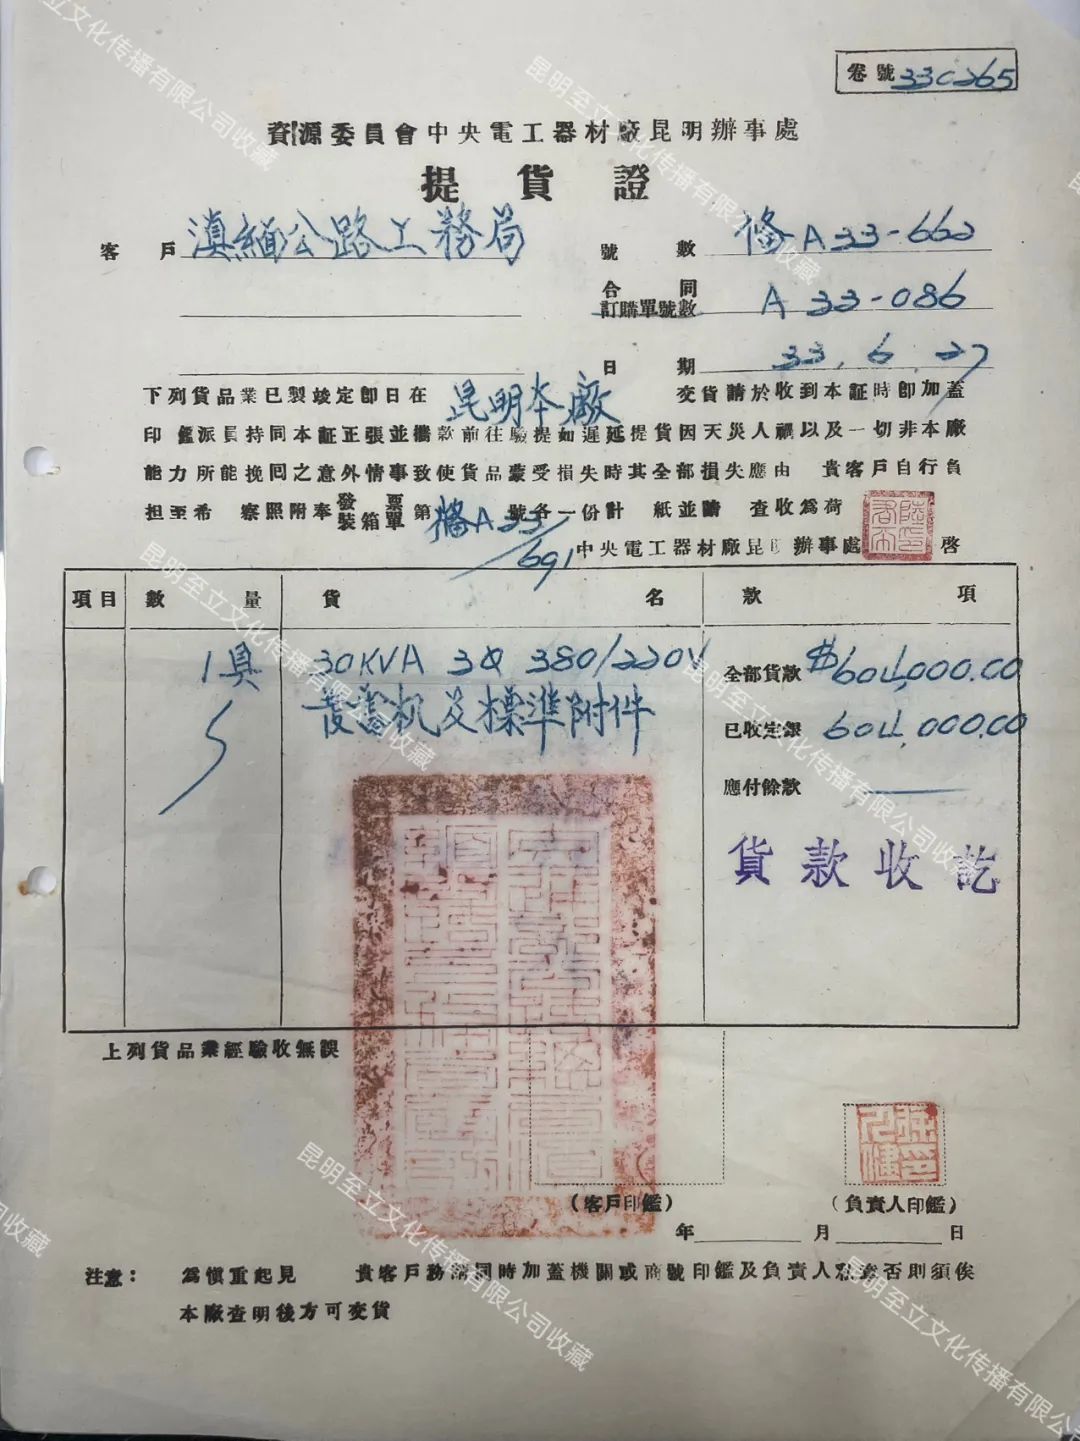 卷號 330265
資源委員會中央電工器材廠昆明辦事處
提貨證
客戶 滇緬公路工務局
號數 A33-662
合同
訂購單號數 A33-086
日期 33.6.27
下列貨品業已製竣定即日在昆明本廠交貨請於收到本証時即加蓋
印鑑派員持同本証正張並攜款前往驗提如遲延提貨因天災人禍以及一切非本廠
能力所能挽回之意外情事致使貨品蒙受損失時其全部損失應由 貴客戶自行負
担至希 察照附奉發票裝箱單第 A33/691 號各一份計 紙並請 查收為荷
中央電工器材廠昆明辦事處 啓
項目 數量 貨名 款項
1具 30KVA 3Φ 380/220V 全部貨款 $604,000.00
机及標準附件 已收定銀 604,000.00
應付餘款 —
貨款收訖
上列貨品業經驗收無誤
(客戶印鑑) (負責人印鑑)
年 月 日
注意： 為慎重起見 貴客戶務請同時加蓋機關或商號印鑑及負責人私章否則須俟
本廠查明後方可交貨
昆明至立文化传播有限公司收藏